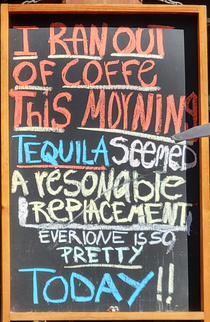 I RAN OUT
OF COFFE
THIS MOYNING
TEQUILA SEEMED
A RESONABLE
REPLACEMENT
EVERIONE IS SO
PRETTY
TODAY!!